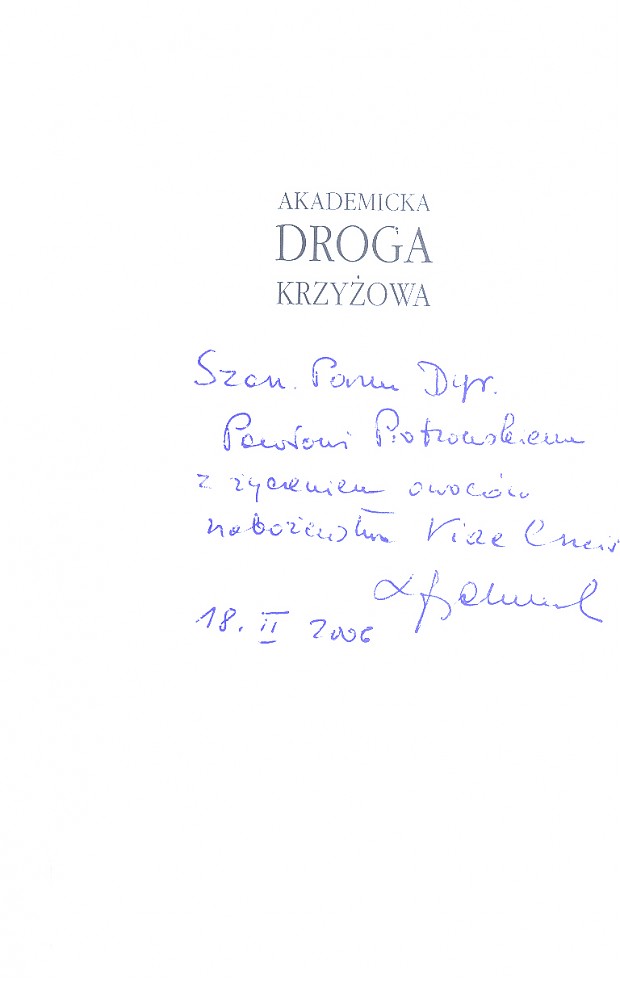 AKADEMICKA
DROGA
KRZYŻOWA
Szan. Panu Dyr.
Pawłowi Piotrowskiemu
z życzeniem owoców
nabożeństwa Viae Crucis
18. II 2006